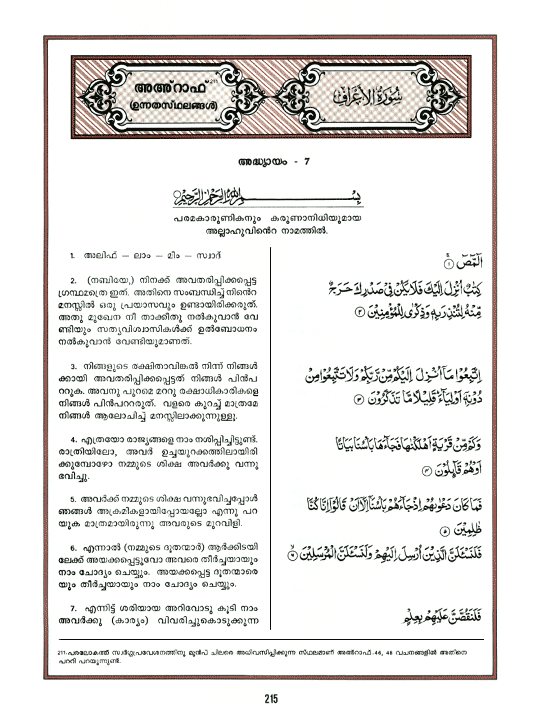 അഅ്റാഫ് 211
(ഉന്നതസ്ഥലങ്ങൾ)
سُورَةُ الأَعْرَافِ
അദ്ധ്യായം - 7
بِسْمِ اللَّهِ الرَّحْمَٰنِ الرَّحِيمِ
പരമകാരുണികനും കരുണാനിധിയുമായ
അല്ലാഹുവിൻെറ നാമത്തിൽ.
1. അലിഫ് – ലാം – മീം – സ്വാദ്
2. (നബിയേ,) നിനക്ക് അവതരിപ്പിക്കപ്പെട്ട
ഗ്രന്ഥമത്രെ ഇത്. അതിനെ സംബന്ധിച്ച് നിൻെറ
മനസ്സിൽ ഒരു പ്രയാസവും ഉണ്ടായിരിക്കരുത്.
അതു മുഖേന നീ താക്കീതു നൽകുവാൻ വേ
ണ്ടിയും സത്യവിശ്വാസികൾക്ക് ഉൽബോധനം
നൽകുവാൻ വേണ്ടിയുമാണത്.
3. നിങ്ങളുടെ രക്ഷിതാവിങ്കൽ നിന്ന് നിങ്ങൾ
ക്കായി അവതരിപ്പിക്കപ്പെട്ടത് നിങ്ങൾ പിൻപ
ററുക. അവനു പുറമെ മററു രക്ഷാധികാരികളെ
നിങ്ങൾ പിൻപററരുത്. വളരെ കുറച്ച് മാത്രമേ
നിങ്ങൾ ആലോചിച്ച് മനസ്സിലാക്കുന്നുള്ളൂ.
4. എത്രയോ രാജ്യങ്ങളെ നാം നശിപ്പിച്ചിട്ടുണ്ട്.
രാത്രിയിലോ, അവർ ഉച്ചയുറക്കത്തിലായിരി
ക്കുമ്പോഴോ നമ്മുടെ ശിക്ഷ അവർക്കു വന്നു
ഭവിച്ചു.
5. അവർക്ക് നമ്മുടെ ശിക്ഷ വന്നുഭവിച്ചപ്പോൾ
ഞങ്ങൾ അക്രമികളായിപ്പോയല്ലോ എന്നു പറ
യുക മാത്രമായിരുന്നു അവരുടെ മുറവിളി.
6. എന്നാൽ (നമ്മുടെ ദൂതന്മാർ) ആർക്കിടയി
ലേക്ക് അയക്കപ്പെട്ടുവോ അവരെ തീർച്ചയായും
നാം ചോദ്യം ചെയ്യും. അയക്കപ്പെട്ട ദൂതന്മാരെ
യും തീർച്ചയായും നാം ചോദ്യം ചെയ്യും.
7. എന്നിട്ട് ശരിയായ അറിവോടു കൂടി നാം
അവർക്കു (കാര്യം) വിവരിച്ചുകൊടുക്കുന്ന
الٓمٓصٓ ١
كِتَٰبٌ أُنزِلَ إِلَيْكَ فَلَا يَكُن فِى صَدْرِكَ حَرَجٌ
مِّنْهُ لِتُنذِرَ بِهِۦ وَذِكْرَىٰ لِلْمُؤْمِنِينَ ٢
اتَّبِعُوا مَآ أُنزِلَ إِلَيْكُم مِّن رَّبِّكُمْ وَلَا تَتَّبِعُوا مِن
دُونِهِۦٓ أَوْلِيَآءَ قَلِيلًا مَّا تَذَكَّرُونَ ٣
وَكَم مِّن قَرْيَةٍ أَهْلَكْنَٰهَا فَجَآءَهَا بَأْسُنَا بَيَٰتًا
أَوْ هُمْ قَآئِلُونَ ٤
فَمَا كَانَ دَعْوَىٰهُمْ إِذْ جَآءَهُم بَأْسُنَآ إِلَّآ أَن قَالُوٓا إِنَّا كُنَّا
ظَٰلِمِينَ ٥
فَلَنَسْـَٔلَنَّ الَّذِينَ أُرْسِلَ إِلَيْهِمْ وَلَنَسْـَٔلَنَّ الْمُرْسَلِينَ ٦
فَلَنَقُصَّنَّ عَلَيْهِم بِعِلْمٍ
211-പരലോകത്ത് സ്വർഗ്ഗപ്രവേശനത്തിനു മുൻപ് ചിലരെ അധിവസിപ്പിക്കുന്ന സ്ഥലമാണ് അഅ്റാഫ്. 46, 48 വചനങ്ങളിൽ അതിനെ
പററി പറയുന്നുണ്ട്.
215